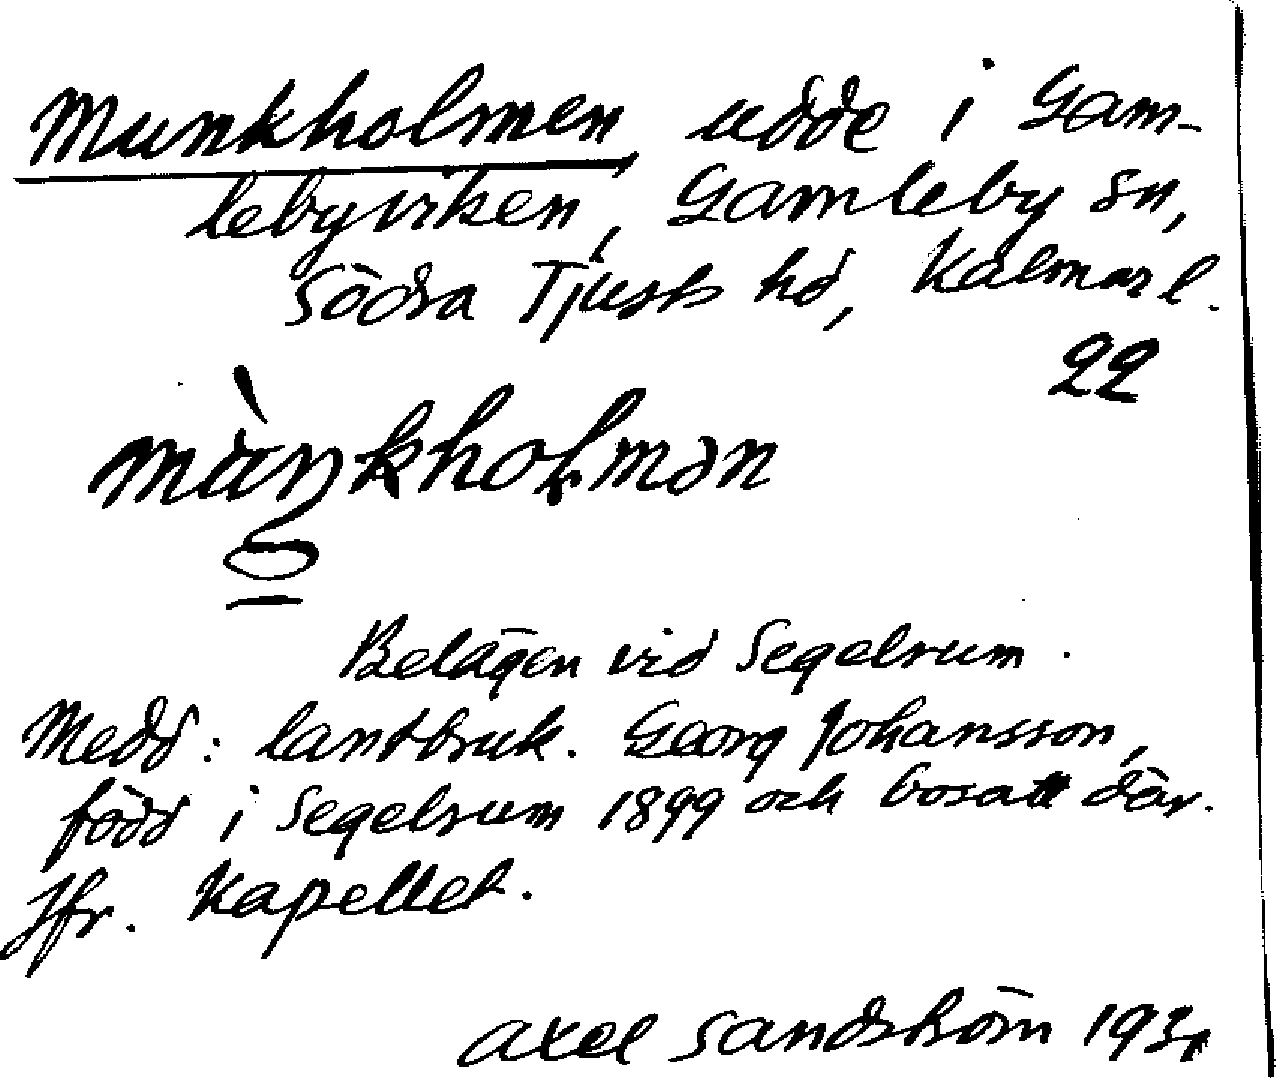 Munkholmen, udde i Gam-
lebyviken, Gamleby sn,
Södra Tjusts hd, Kalmar l.
22
Belägen vid Segelrum.
Medd: lantbruk. Georg Johansson,
född i Segelrum 1899 och bosatt där.
Jfr. Kapellet.
Axel Sandström